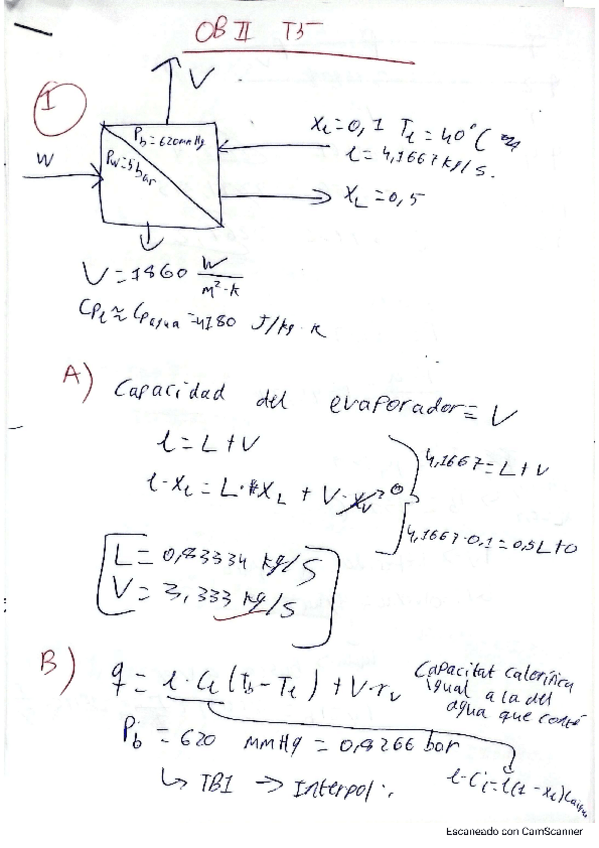 OB II T5
I
V
P_b = 620 mmHg
P_w = 5 bar
W
x_l = 0,1 T_l = 40°C
l = 4,1667 kg/s.
x_L = 0,5
U = 1860 W/m²·K
Cp_l ≈ Cp_agua = 4180 J/kg·K
A) Capacidad del evaporador = V
l = L + V
l·x_l = L·x_L + V·x_v⁰
4,1667 = L + V
4,1667·0,1 = 0,5L + 0
L = 0,83334 kg/s
V = 3,333 kg/s
B) q = l·C_l (T_b - T_l) + V·r_v
Capacitat calorífica
igual a la del
agua que conté
P_b = 620 mmHg = 0,8266 bar
↳ TB1 → Interpol.
l·C_l = l(1 - x_l)C_agua
Escaneado con CamScanner